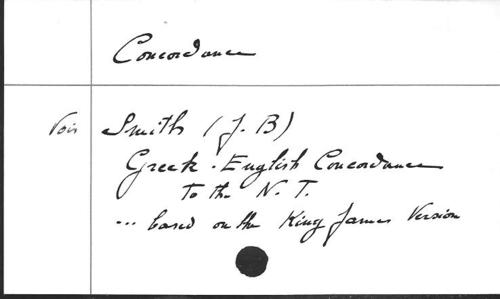 Concordance
Voir Smith (J. B)
Greek-English Concordance
to the N. T.
... based on the King James Version